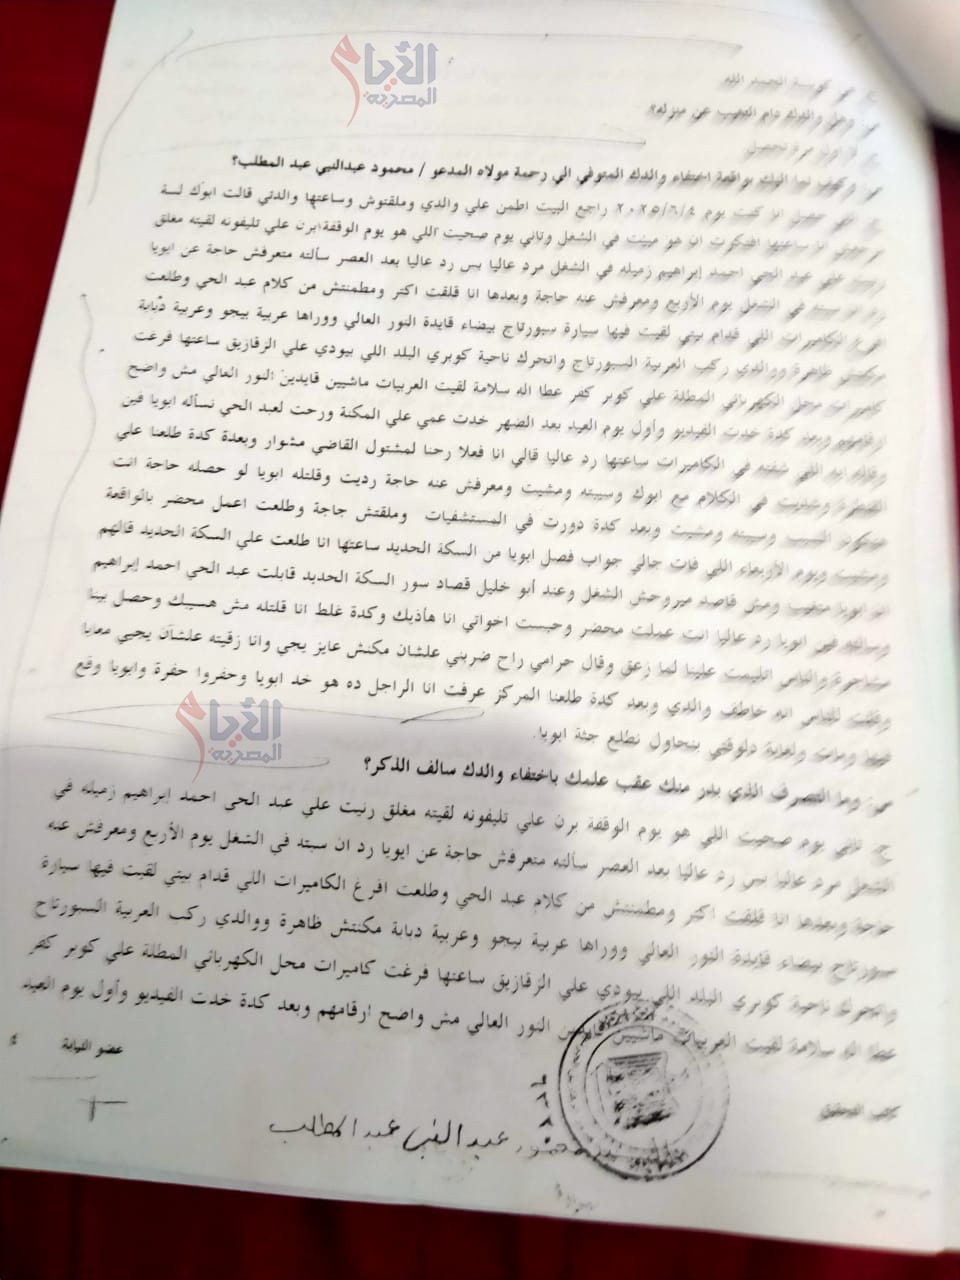 الأيام
المصرية
ج: هي كويسة الحمد الله
س: وهل والدك دائم التغيب عن منزله؟
ج: لا اول مرة تحصل
س: وكيف نما اليك بواقعة اختفاء والدك المتوفي الي رحمة مولاه المدعو / محمود عبدالنبي عبد المطلب؟
ج: اللي حصل انا كنت يوم ٢٠٢٥/٦/٤ راجع البيت اطمن علي والدي وملقتوش وساعتها والدتي قالت ابوك لسة
مرجعش انا ساعتها افتكرت ان هو مبيت في الشغل وتاني يوم صحيت اللي هو يوم الوقفة برن علي تليفونه لقيته مغلق
رنيت علي عبد الحي احمد إبراهيم زميله في الشغل مرد عاليا بس رد عاليا بعد العصر سألته متعرفش حاجة عن ابويا
رد ان سبته في الشغل يوم الأربع ومعرفش عنه حاجة وبعدها انا قلقت اكتر ومطمنتش من كلام عبد الحي وطلعت
افرغ الكاميرات اللي قدام بيتي لقيت فيها سيارة سبورتاج بيضاء قايدة النور العالي ووراها عربية بيجو وعربية دبابة
مكنتش ظاهرة ووالدي ركب العربية السبورتاج واتحرك ناحية كوبري البلد اللي بيودي علي الزقازيق ساعتها فرغت
كاميرات محل الكهربائي المطلة علي كوبر كفر عطا اله سلامة لقيت العربيات ماشيين قايدين النور العالي مش واضح
ارقامهم وبعد كدة خدت الفيديو وأول يوم العيد بعد الضهر خدت عمي علي المكنة ورحت لعبد الحي نسأله ابويا فين
وقاله ايه اللي شفته في الكاميرات ساعتها رد عاليا قالي انا فعلا رحنا لمشتول القاضي مشوار وبعدة كدة طلعنا علي
القنطرة وشديت في الكلام مع ابوك وسيبته ومشيت ومعرفش عنه حاجة رديت وقلتله ابويا لو حصله حاجة انت
هتكون السبب وسيبته ومشيت وبعد كدة دورت في المستشفيات وملقتش حاجة وطلعت اعمل محضر بالواقعة
ومشيت ويوم الأربعاء اللي فات جالي جواب فصل ابويا من السكة الحديد ساعتها انا طلعت علي السكة الحديد قالتهم
ان ابويا متغيب ومش قاصد ميروحش الشغل وعند أبو خليل قصاد سور السكة الحديد قابلت عبد الحي احمد إبراهيم
وسالته فين ابويا رد عاليا انت عملت محضر وحبست اخواتي انا هأذيك وكدة غلط انا قلتله مش هسيبك وحصل بينا
مشاجرة والناس اتلمت علينا لما زعق وقال حرامي راح ضربني علشان مكنش عايز يجي وانا زقيته علشان يجيي معايا
وقلت للناس انه خاطف والدي وبعد كدة طلعنا المركز عرفت انا الراجل ده هو خد ابويا وحفروا حفرة وابويا وقع
فيها ومات ولغاية دلوقتي بنحاول نطلع جثة ابويا.
الأيام
المصرية
س: وما التصرف الذي بدر منك عقب علمك باختفاء والدك سالف الذكر؟
ج: تاني يوم صحيت اللي هو يوم الوقفة برن علي تليفونه لقيته مغلق رنيت علي عبد الحي احمد إبراهيم زميله في
الشغل مرد عاليا بس رد عاليا بعد العصر سالته متعرفش حاجة عن ابويا رد ان سبته في الشغل يوم الأربع ومعرفش عنه
حاجة وبعدها انا قلقت اكتر ومطمنتش من كلام عبد الحي وطلعت افرغ الكاميرات اللي قدام بيتي لقيت فيها سيارة
سبورتاج بيضاء قايدة النور العالي ووراها عربية بيجو وعربية دبابة مكنتش ظاهرة ووالدي ركب العربية السبورتاج
واتحرك ناحية كوبري البلد اللي بيودي علي الزقازيق ساعتها فرغت كاميرات محل الكهربائي المطلة علي كوبر كفر
عطا اله سلامة لقيت العربيات ماشيين قايدين النور العالي مش واضح ارقامهم وبعد كدة خدت الفيديو وأول يوم العيد
كاتب التحقيق
عضو النيابة
محمود عبد النبي عبد المطلب